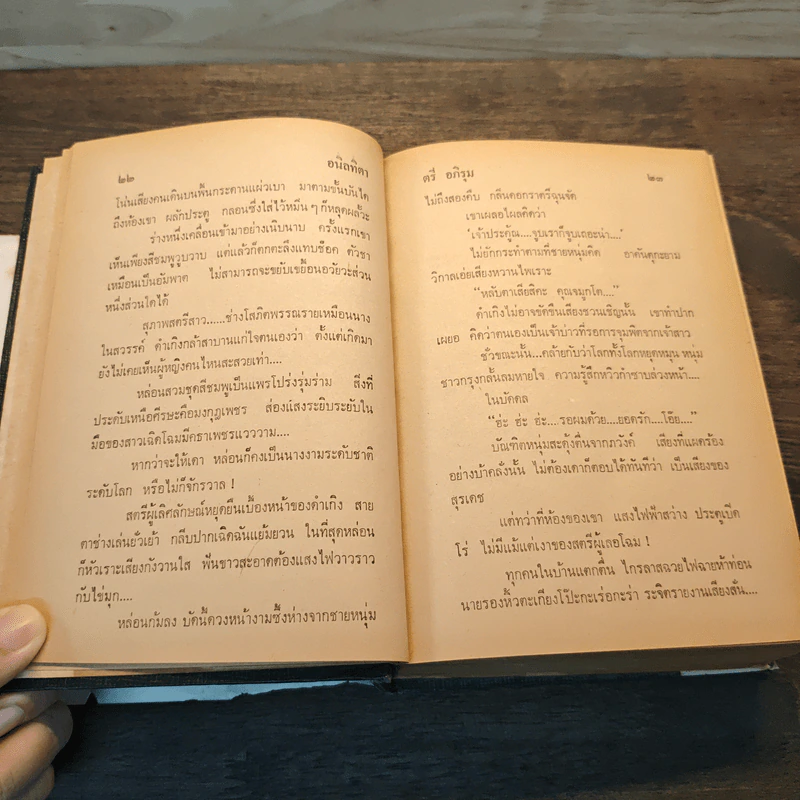 ๒๒ อนิลทิตา
โน่นเสียงคนเดินบนพื้นกระดานแผ่วเบา มาตามขั้นบันได
ถึงห้องเขา ผลักประตู กลอนซึ่งใส่ไว้หมื่น ๆ ก็หลุดผลั้วะ
ร่างหนึ่งเคลื่อนเข้ามาอย่างเนิบนาบ ครั้งแรกเขา
เห็นเพียงสีชมพูวูบวาบ แต่แล้วก็ตกตะลึงแทบช็อค ตัวชา
เหมือนเป็นอัมพาต ไม่สามารถจะขยับเขยื้อนอวัยวะส่วน
หนึ่งส่วนใดได้
สุภาพสตรีสาว......ช่างโสภิตพรรณรายเหมือนนาง
ในสวรรค์ ดำเกิงกล้าสาบานแก่ใจตนเองว่า ตั้งแต่เกิดมา
ยังไม่เคยเห็นผู้หญิงคนไหนสะสวยเท่า....
หล่อนสวมชุดสีชมพูเป็นแพรโปร่งรุ่มร่าม สิ่งที่
ประดับเหนือศีรษะคือมงกุฎเพชร ส่องแสงระยิบระยับใน
มือของสาวเฉิดโฉมมีคธาเพชรแวววาม....
หากว่าจะให้เดา หล่อนก็คงเป็นนางงามระดับชาติ
ระดับโลก หรือไม่ก็จักรวาล !
สตรีผู้เลิศลักษณ์หยุดยืนเบื้องหน้าของดำเกิง สาย
ตาช่างเล่นยั่วเย้า กลีบปากเฉิดฉันแย้มยวน ในที่สุดหล่อน
ก็หัวเราะเสียงกังวานใส ฟันขาวสะอาดต้องแสงไฟวาวราว
กับไข่มุก....
หล่อนก้มลง บัดนี้ดวงหน้างามซึ้งห่างจากชายหนุ่ม
ตรี อภิรุม ๒๓
ไม่ถึงสองคืบ กลิ่นดอกราตรีฉุนจัด
เขาเผลอไผลคิดว่า
'เจ้าประคู้ณ....จูบเราก็จูบเถอะน่า....'
ไม่ยักกระทำตามที่ชายหนุ่มคิด
วิกาลเอ่ยเสียงหวานไพเราะ
"หลับตาเสียสิคะ คุณจมูกโต...."
ดำเกิงไม่อาจขัดขืนเสียงชวนเชิญนั้น เขาทำปาก
เผยอ คิดว่าตนเองเป็นเจ้าบ่าวที่รอการจุมพิตจากเจ้าสาว
ชั่วขณะนั้น...คล้ายกับว่าโลกทั้งโลกหยุดหมุน หนุ่ม
ชาวกรุงกลั้นลมหายใจ ความรู้สึกหวิวกำซาบล่วงหน้า....
ในบัดดล
"ฮ่ะ ฮ่ะ ฮ่ะ....รอผมด้วย....ยอดรัก....โอ๊ย...."
บัณฑิตหนุ่มสะดุ้งตื่นจากภวังค์ เสียงที่แผดร้อง
อย่างบ้าคลั่งนั้น ไม่ต้องเดาก็ตอบได้ทันทีว่า เป็นเสียงของ
สุรเดช
แต่ทว่าที่ห้องของเขา แสงไฟฟ้าสว่าง ประตูเปิด
โร่ ไม่มีแม้แต่เงาของสตรีผู้เลอโฉม !
ทุกคนในบ้านแตกตื่น ไกรลาสฉวยไฟฉายห้าท่อน
นายรองหิ้วตะเกียงโป๊ะกะเร่อกะร่า ระจิตรายงานเสียงสั่น....